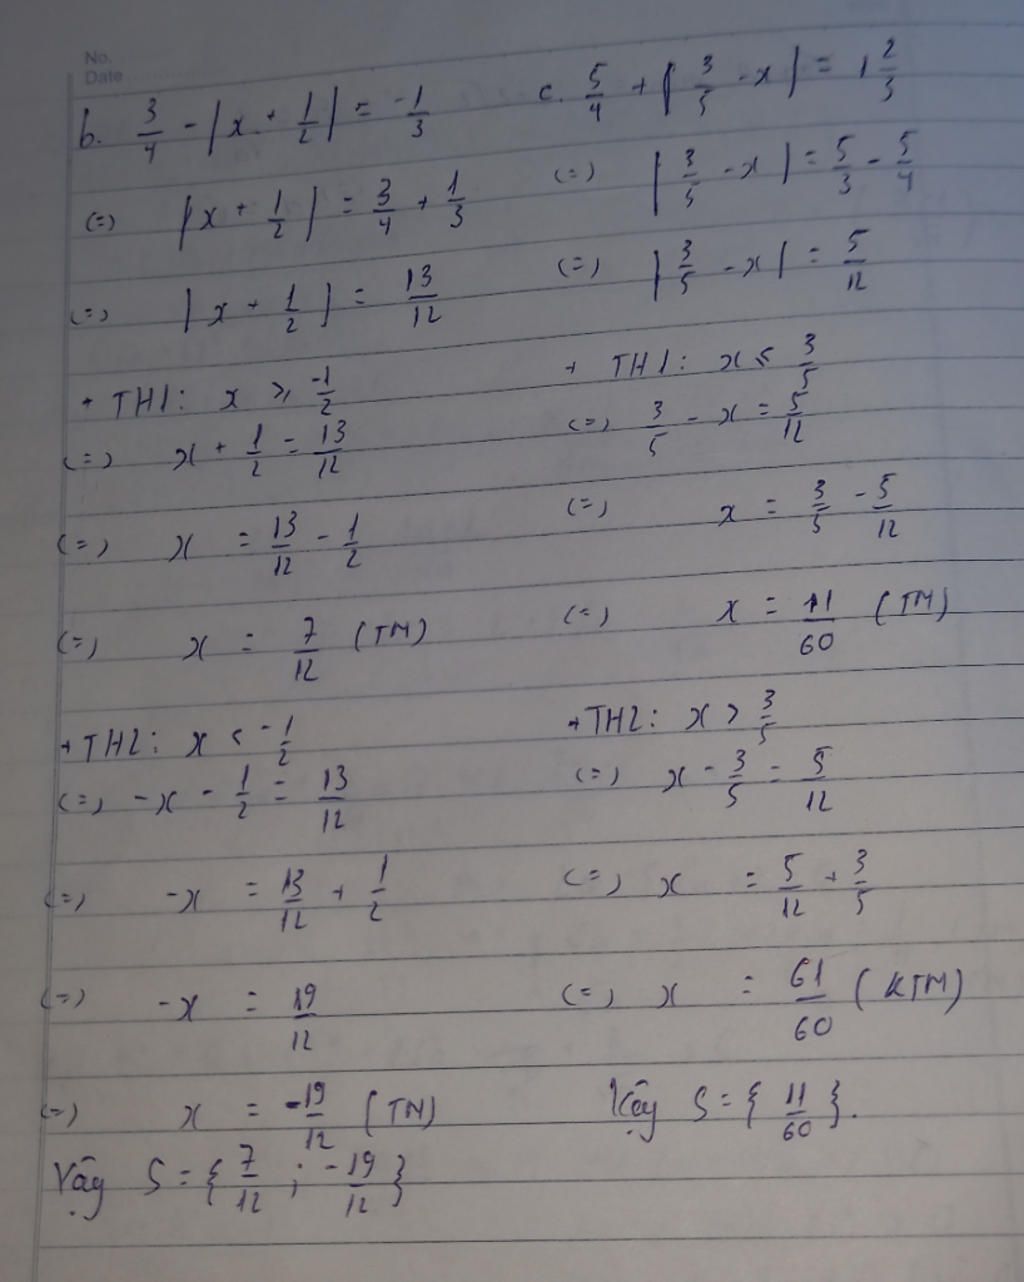 No.
Date
b. 3/4 - |x + 1/2| = -1/3
(=) |x + 1/2| = 3/4 + 1/3
(=) |x + 1/2| = 13/12
+ TH1: x ≥ -1/2
(=) x + 1/2 = 13/12
(=) x = 13/12 - 1/2
(=) x = 7/12 (TM)
+ TH2: x < -1/2
(=) -x - 1/2 = 13/12
(=) -x = 13/12 + 1/2
(=) -x = 19/12
(=) x = -19/12 (TM)
Vậy S = {7/12 ; -19/12}
c. 5/4 + |3/5 - x| = 1 2/3
(=) |3/5 - x| = 5/3 - 5/4
(=) |3/5 - x| = 5/12
+ TH1: x ≤ 3/5
(=) 3/5 - x = 5/12
(=) x = 3/5 - 5/12
(=) x = 11/60 (TM)
+ TH2: x > 3/5
(=) x - 3/5 = 5/12
(=) x = 5/12 + 3/5
(=) x = 61/60 (KTM)
Vậy S = {11/60}.